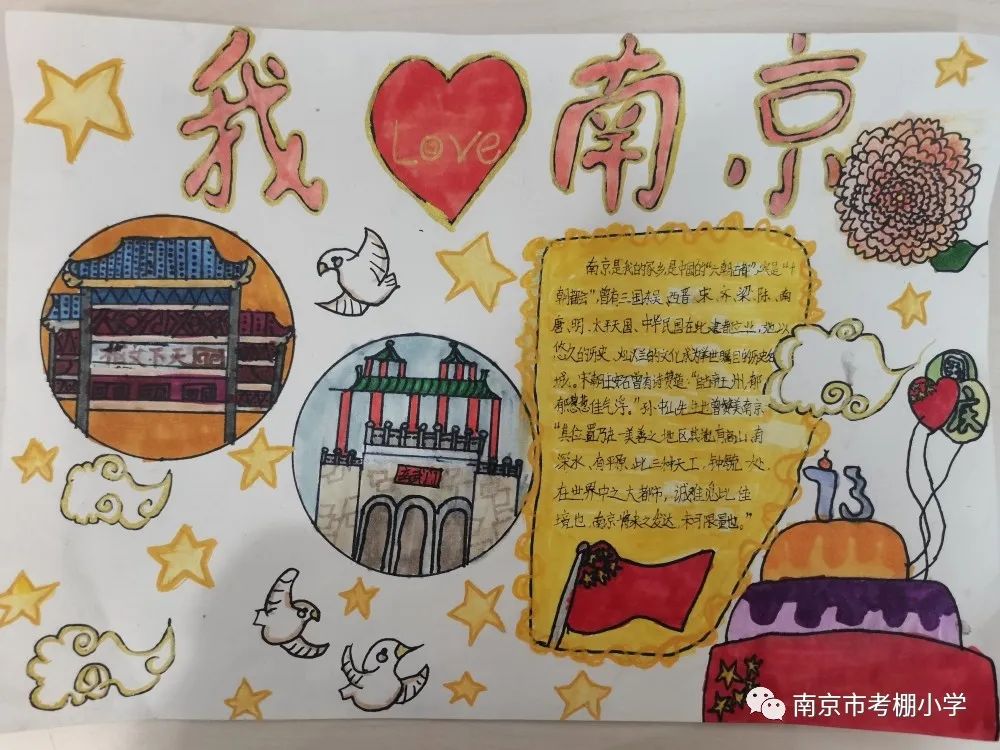 我 Love 南京
南京是我的家乡,是中国的"六朝古都",实是"十
朝都会",曾有三国东吴、西晋、宋、齐、梁、陈、南
唐、明、太平天国、中华民国在此建都立业,她以
悠久的历史、灿烂的文化成为举世瞩目的历史
城。宋朝王安石曾有诗赞道:"
佳气浮。"孙中山先生也曾赞美南京:
"其位置乃在一美善之地区,其地有高山,有
深水,有平原,此三种天工,钟毓一处,
在世界中之大都市,诚难觅此佳
境也。南京将来之发达,未可限量也。"
天下文枢
国庆
73
南京市考棚小学